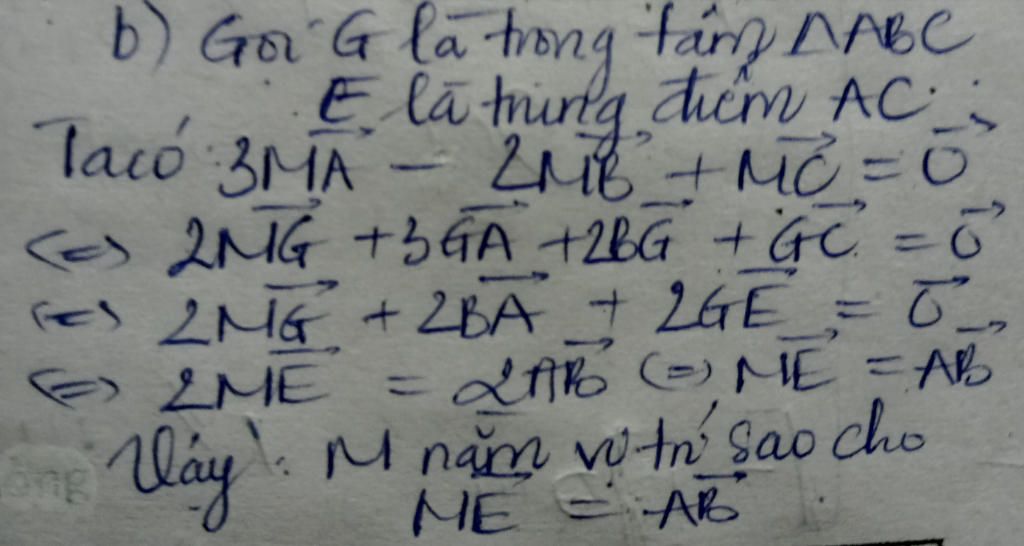 b) Gọi G là trọng tâm △ABC
E là trung điểm AC.
Ta có: 3\vec{MA} - 2\vec{MB} + \vec{MC} = \vec{0}
<=> 2\vec{MG} + 3\vec{GA} + 2\vec{BG} + \vec{GC} = \vec{0}
<=> 2\vec{MG} + 2\vec{BA} + 2\vec{GE} = \vec{0}
<=> 2\vec{ME} = 2\vec{AB} <=> \vec{ME} = \vec{AB}
Vậy: M nằm vị trí sao cho
\vec{ME} = \vec{AB}.